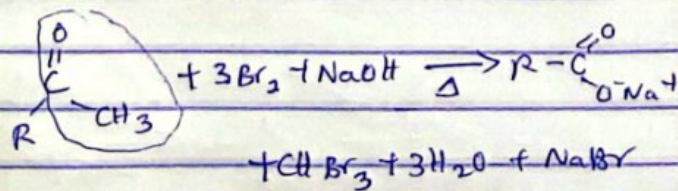 O
||
C
R CH3 + 3Br2 + NaOH →Δ R-C=O
O⁻Na⁺
+ CHBr3 + 3H2O + NaBr